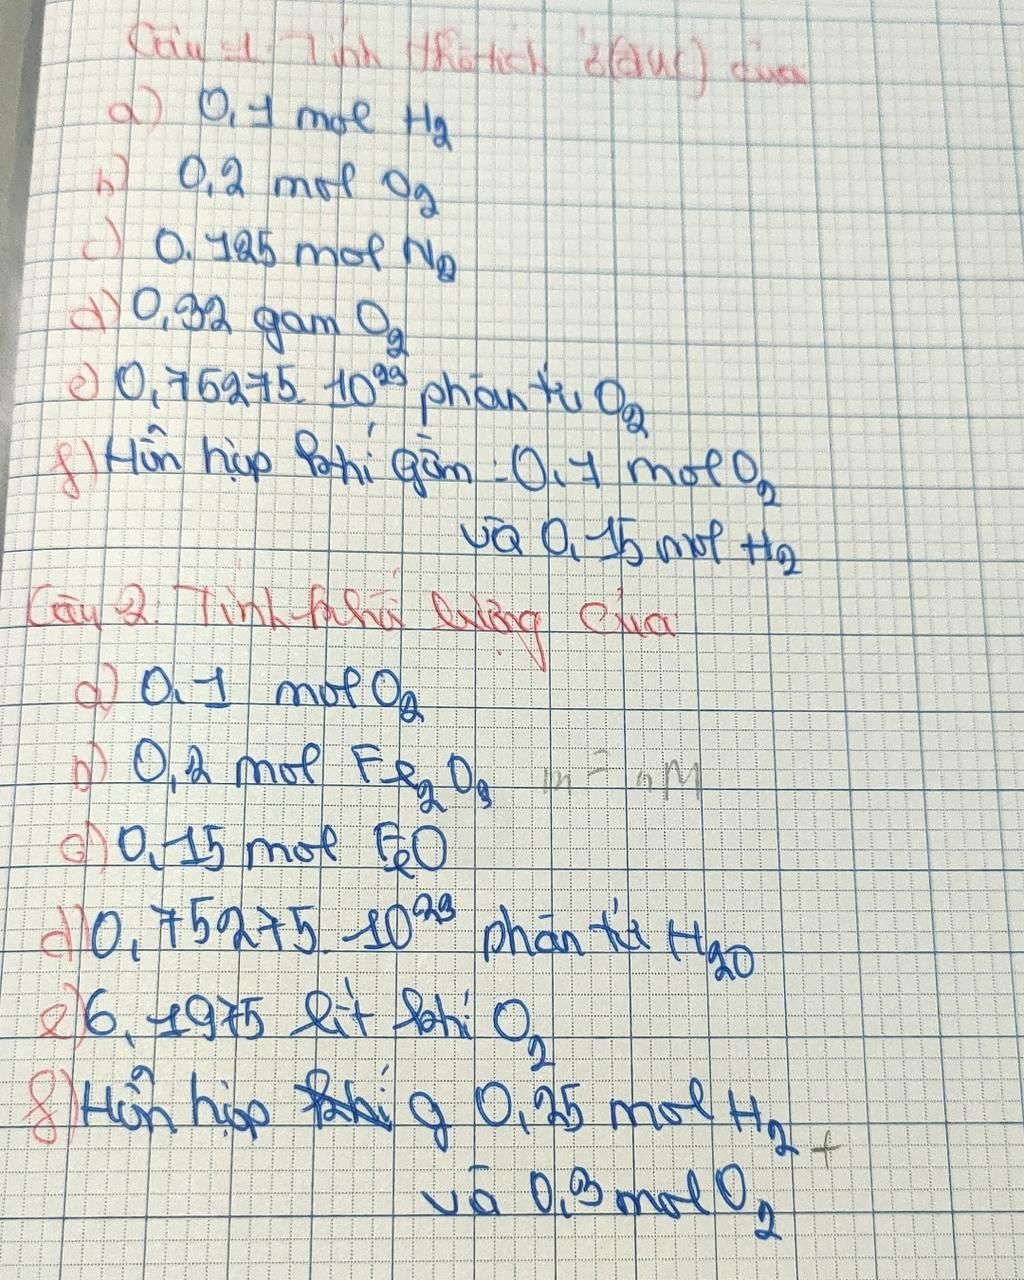 Câu 1. Tính thể tích ở (đkc) của
a) 0,1 mol H2
b) 0,2 mol O2
c) 0.125 mol N2
d) 0,32 gam O2
e) 0,75275. 10^23 phân tử O2
f) Hỗn hợp khí gồm : 0,1 mol O2
và 0,15 mol H2
Câu 2. Tính khối lượng của
a) 0,1 mol O2
b) 0,2 mol Fe2O3 m = nM
c) 0,15 mol FeO
d) 0,75275. 10^23 phân tử H2O
e) 6,1975 lít khí O2
f) Hỗn hợp khí g 0,25 mol H2 +
và 0,3 mol O2